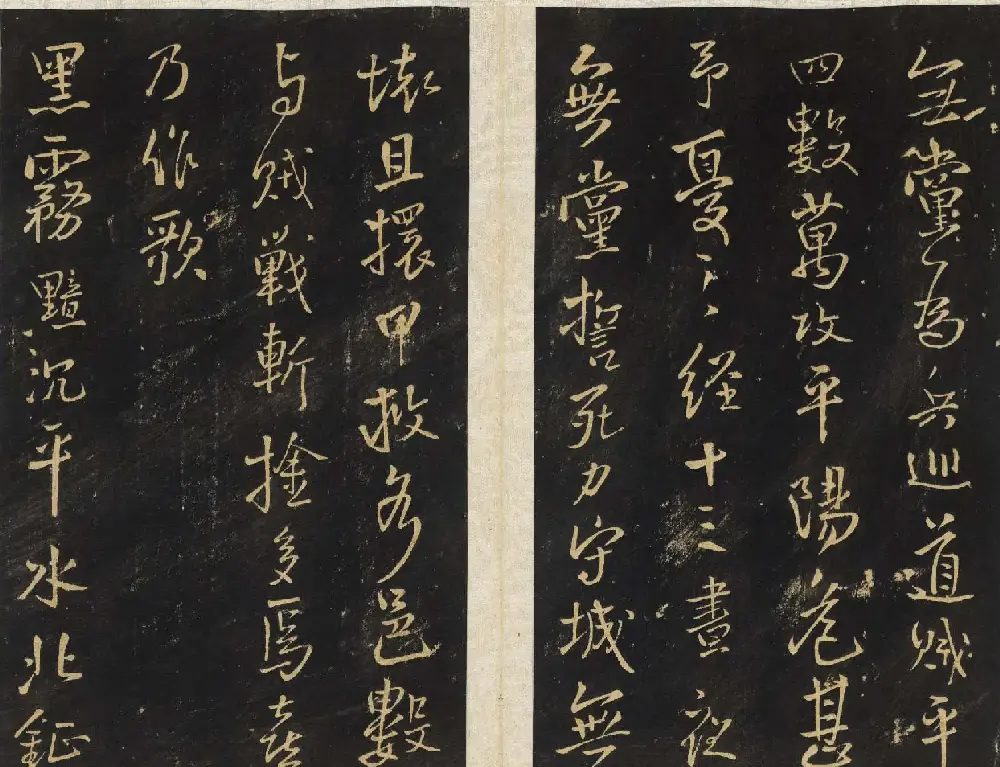 無黨為兵巡道賊平
四數萬攻平陽危甚
予憂之經十三晝夜
無黨誓死力守城無
壞且擐甲救各邑數
与賊戰斬擒多焉喜
乃作歌
黑霧黯沉平水北鉦